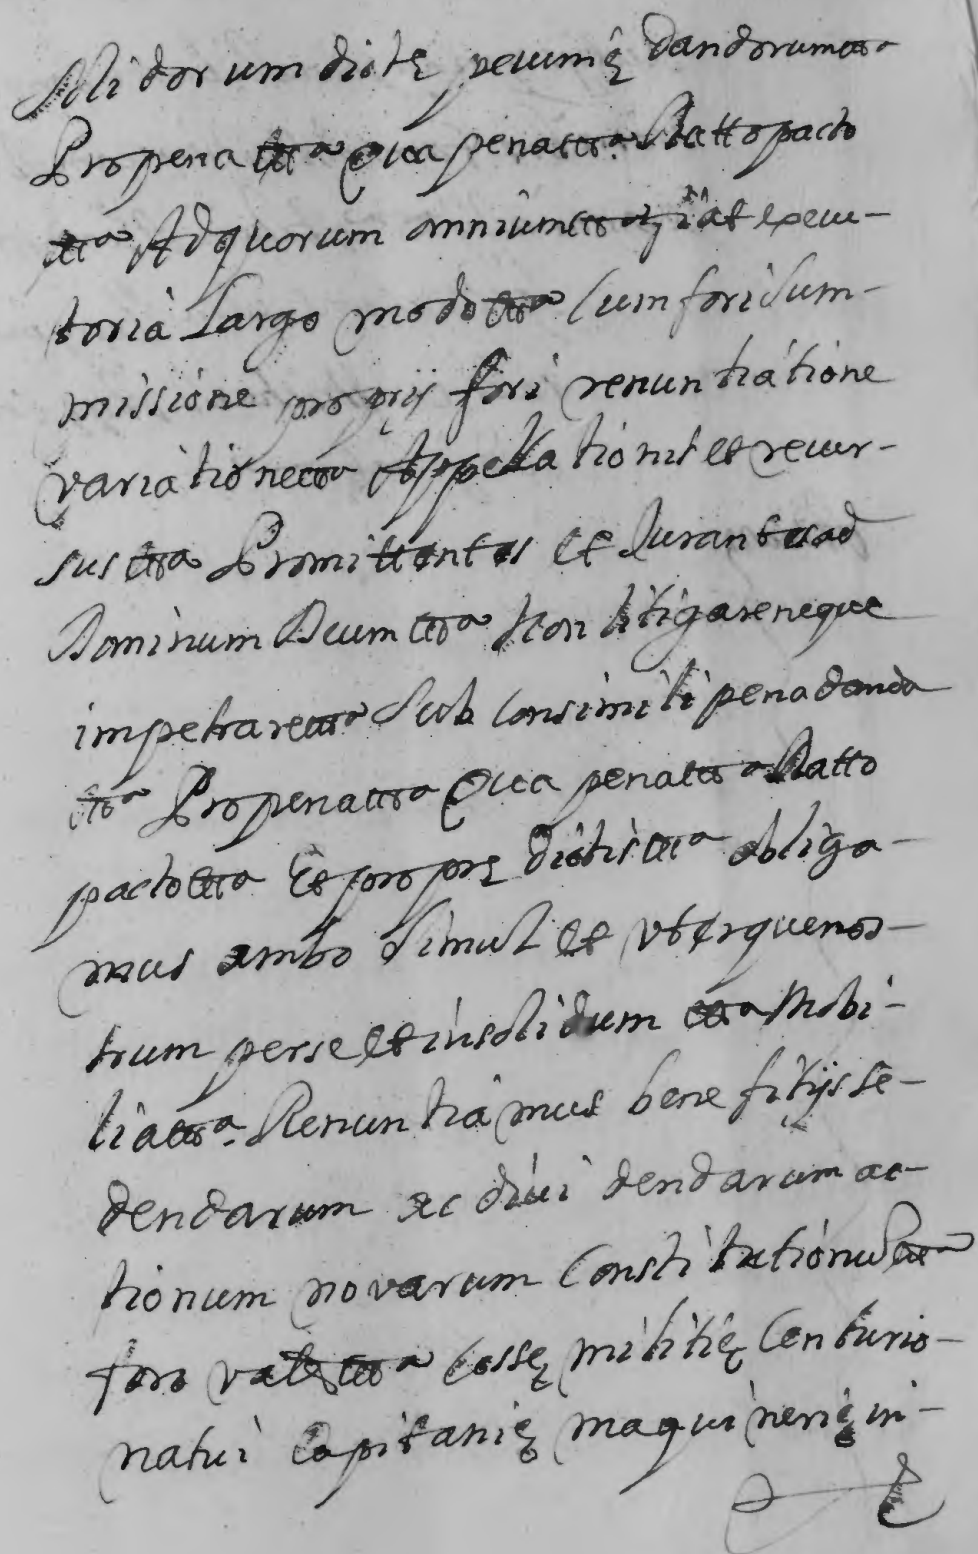 solidorum dictę pecunię dandorum etta
Pro pena etta Qua pena etta Ratto pacto
etta Ad quorum omnium etta fiat execu-
toria Largo modo etta Cum fori sum-
missione proprij fori renuntiatione
variatione etta Appellationis et recur-
sus etta Promittentes et Jurantes ad
Dominum Deum etta Non litigare neque
impetrare etta Sub consimili pena danda
etta Pro pena etta Qua pena etta Ratto
pacto etta Et pro prę dictis etta obliga-
mus ambo simul et vterque nos-
trum per se et insolidum etta Mobi-
lia etta. Renuntiamus benefitijs se-
dendarum ac diui dendarum ac-
tionum novarum Constitutionu
foro etta Cossę militię Centurio-
natui Capitanię maquinerię in-